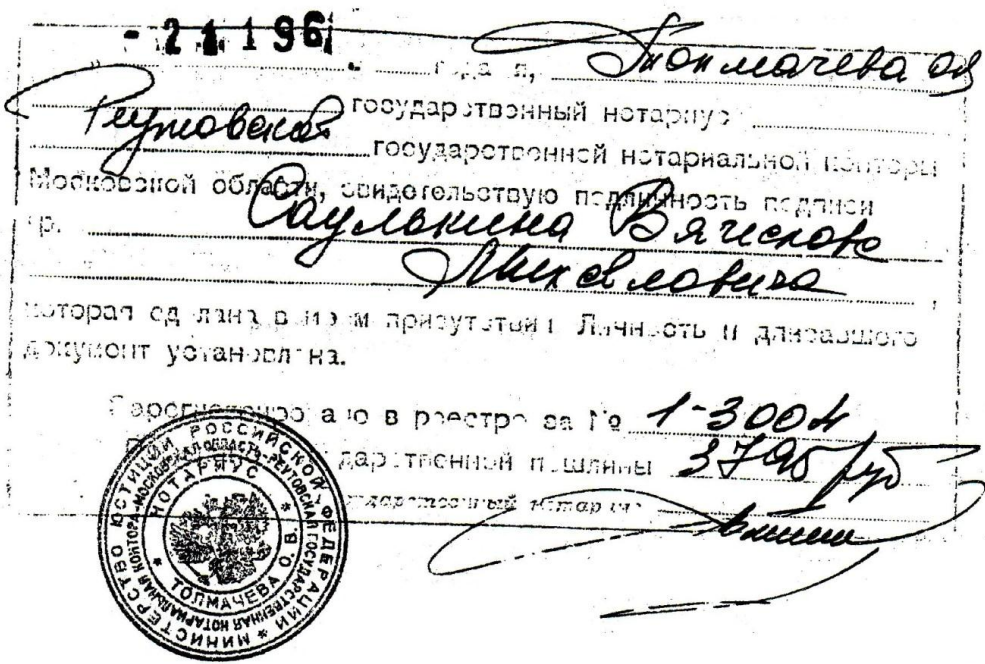 - 2 1 1 96
года я, Толмачева ОВ
государственный нотариус
Реутовской государственной нотариальной конторы
Московской области, свидетельствую подлинность подписи
гр. Саулькина Вячеслава
Михайловича,
которая сделана в моем присутствии. Личность подписавшего
документ установлена.
Зарегистрировано в реестре за № 1-3004
дарственной пошлины 3795 руб
государственный нотариус
МИНИСТЕРСТВО ЮСТИЦИИ РОССИЙСКОЙ ФЕДЕРАЦИИ *
МОСКОВСКАЯ ОБЛАСТЬ-РЕУТОВСКАЯ ГОСУДАРСТВЕННАЯ НОТАРИАЛЬНАЯ КОНТОРА-
НОТАРИУС * ТОЛМАЧЕВА О. В. *